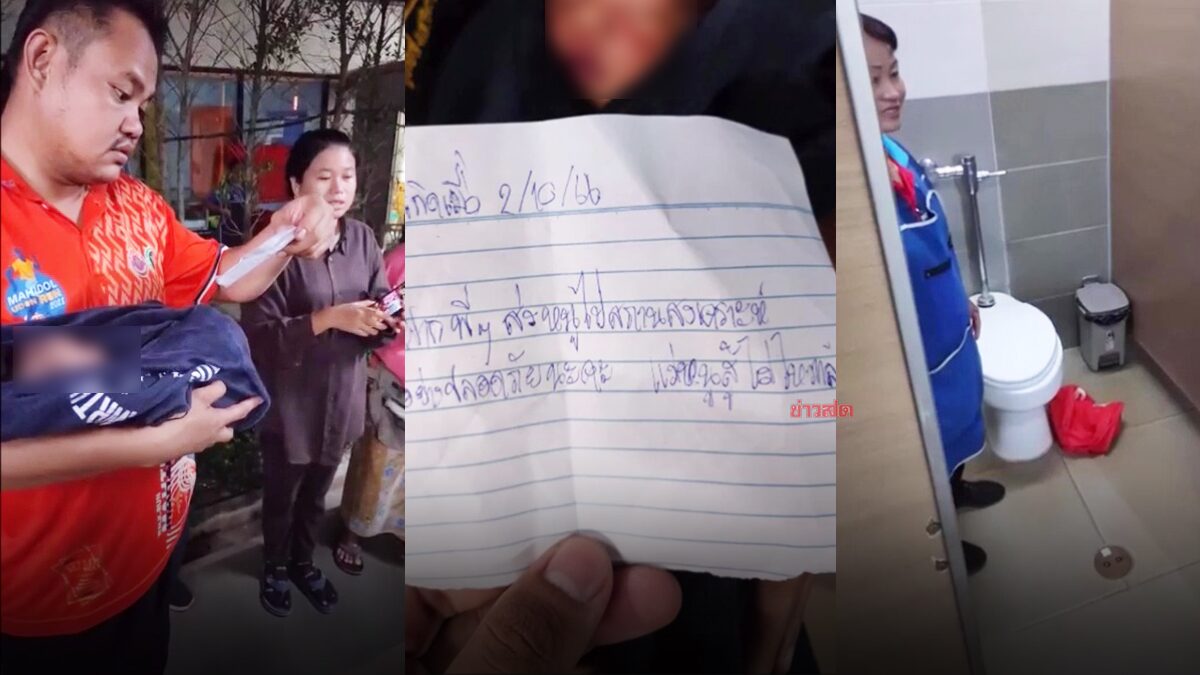 MAHIDOL
UDON RUN
2023
เกิดเมื่อ 2/10/66
พี่ๆ ส่งหนูไปสถานสงเคราะห์
อย่างปลอดภัยนะคะ แม่หนูสู้ไม่ไหวแล้ว
ข่าวสด